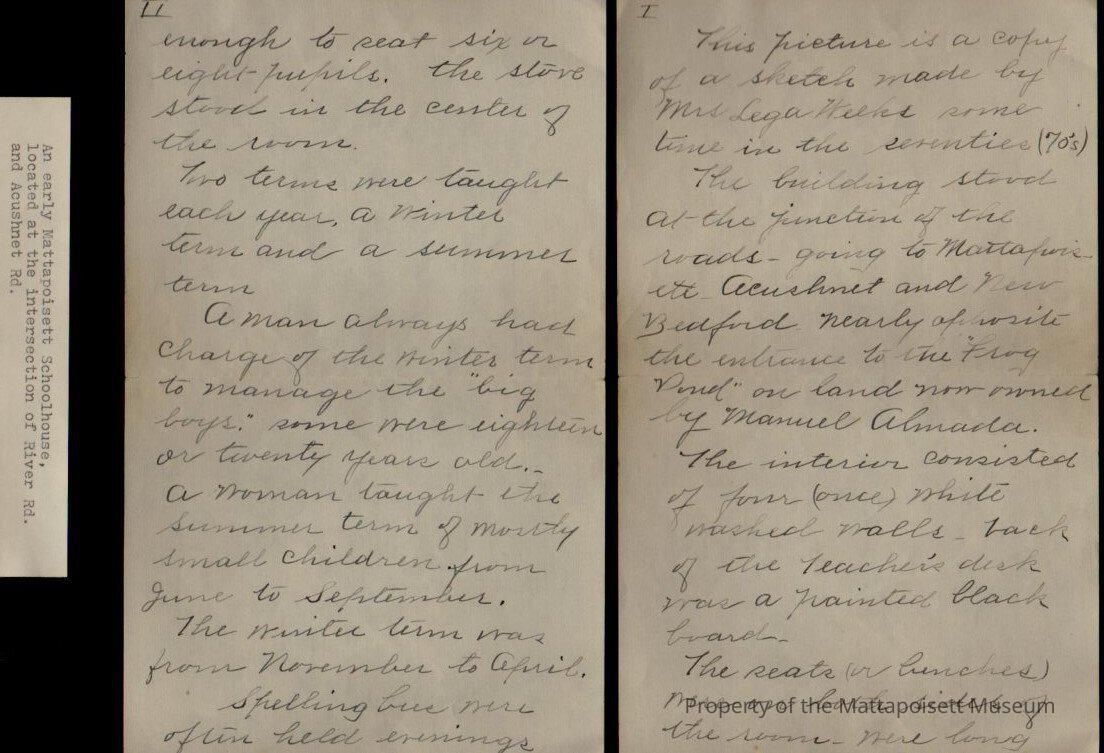 I
This picture is a copy
of a sketch made by
Mrs Lega Weeks some
time in the seventies (70's)
The building stood
at the junction of the
roads - going to Mattapois-
ett - Acushnet and New
Bedford nearly opposite
the entrance to the "Frog
Pond" on land now owned
by Manuel Almada.
The interior consisted
of four (once) white
washed walls - back
of the teacher's desk
was a painted black
board -
The seats (or benches)
were on both sides of
the room - were long
II
enough to seat six or
eight pupils. The stove
stood in the center of
the room.
Two terms were taught
each year, a winter
term and a summer
term
A man always had
charge of the winter term
to manage the "big
boys." some were eighteen
or twenty years old. -
A woman taught the
summer term of mostly
small children from
June to September.
The winter term was
from November to April.
Spelling bees were
often held evenings
An early Mattapoisett Schoolhouse,
located at the intersection of River Rd.
and Acushnet Rd.
Property of the Mattapoisett Museum